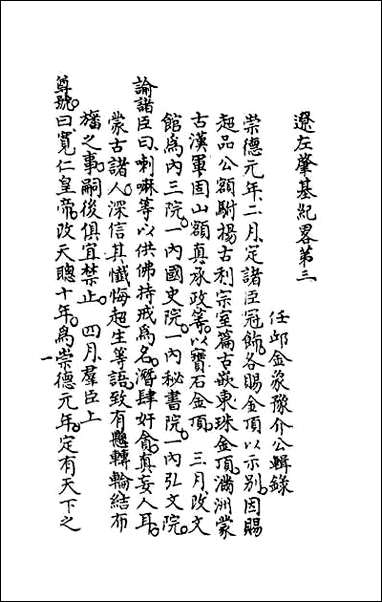 遼左肇基紀畧第三
任邱金象豫介公輯錄
崇德元年二月定諸臣冠飾各賜金頂以示別因賜
超品公額駙揚古利宗室篇古嵌東珠金頂滿洲蒙
古漢軍固山額真承政等以寶石金頂 三月改文
館為内三院一内國史院一内秘書院一内弘文院
諭諸臣曰喇嘛等以供佛持戒為名潛肆奸貪真妄人耳
蒙古諸人深信其懺悔超生等語致有懸轉輪結布
旛之事嗣後俱宜禁止 四月羣臣上
尊號曰寬仁皇帝改天聰十年為崇德元年定有天下之
一